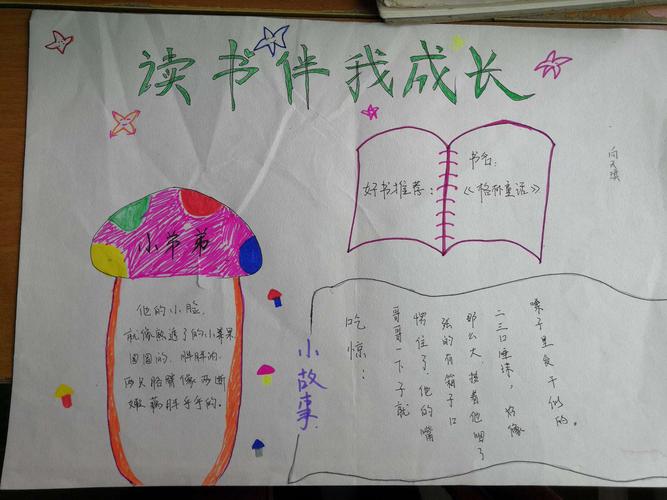 读书伴我成长
好书推荐:
书名:
《格林童话》
小爷弟
他的小脸,
就像熟透了的小苹果
圆圆的,胖胖的,
两只胳臂像两断
嫩藕胖乎乎的。
小故事
吃惊:
哥哥一下子就
愣住了,他的嘴
张的有箱子口
那么大,接着他咽了
二三口唾沫,好像
嗓子里发干似的。